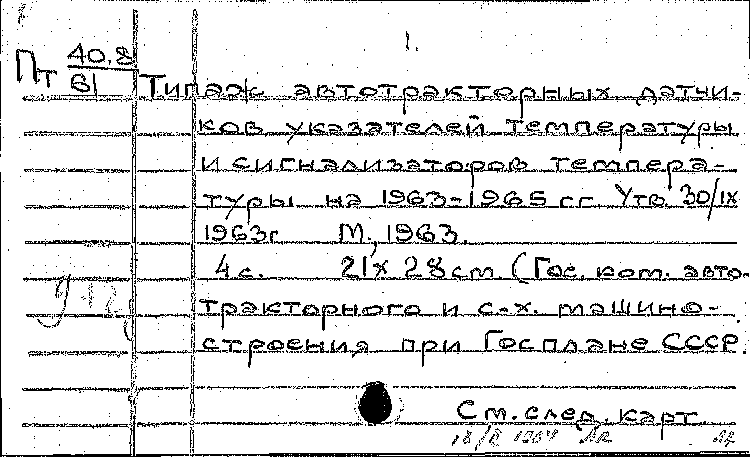 1.
Пт 40.8
61
Типаж автотракторных датчи-
ков указателей температуры
и сигнализаторов темпера-
туры на 1963-1965 гг. Утв. 30/IX
1963г М., 1963.
4 с. 21х28см. (Гос. ком. авто-
тракторного и с-х. машино-
строения при Госплане СССР.
См. след. карт
1964